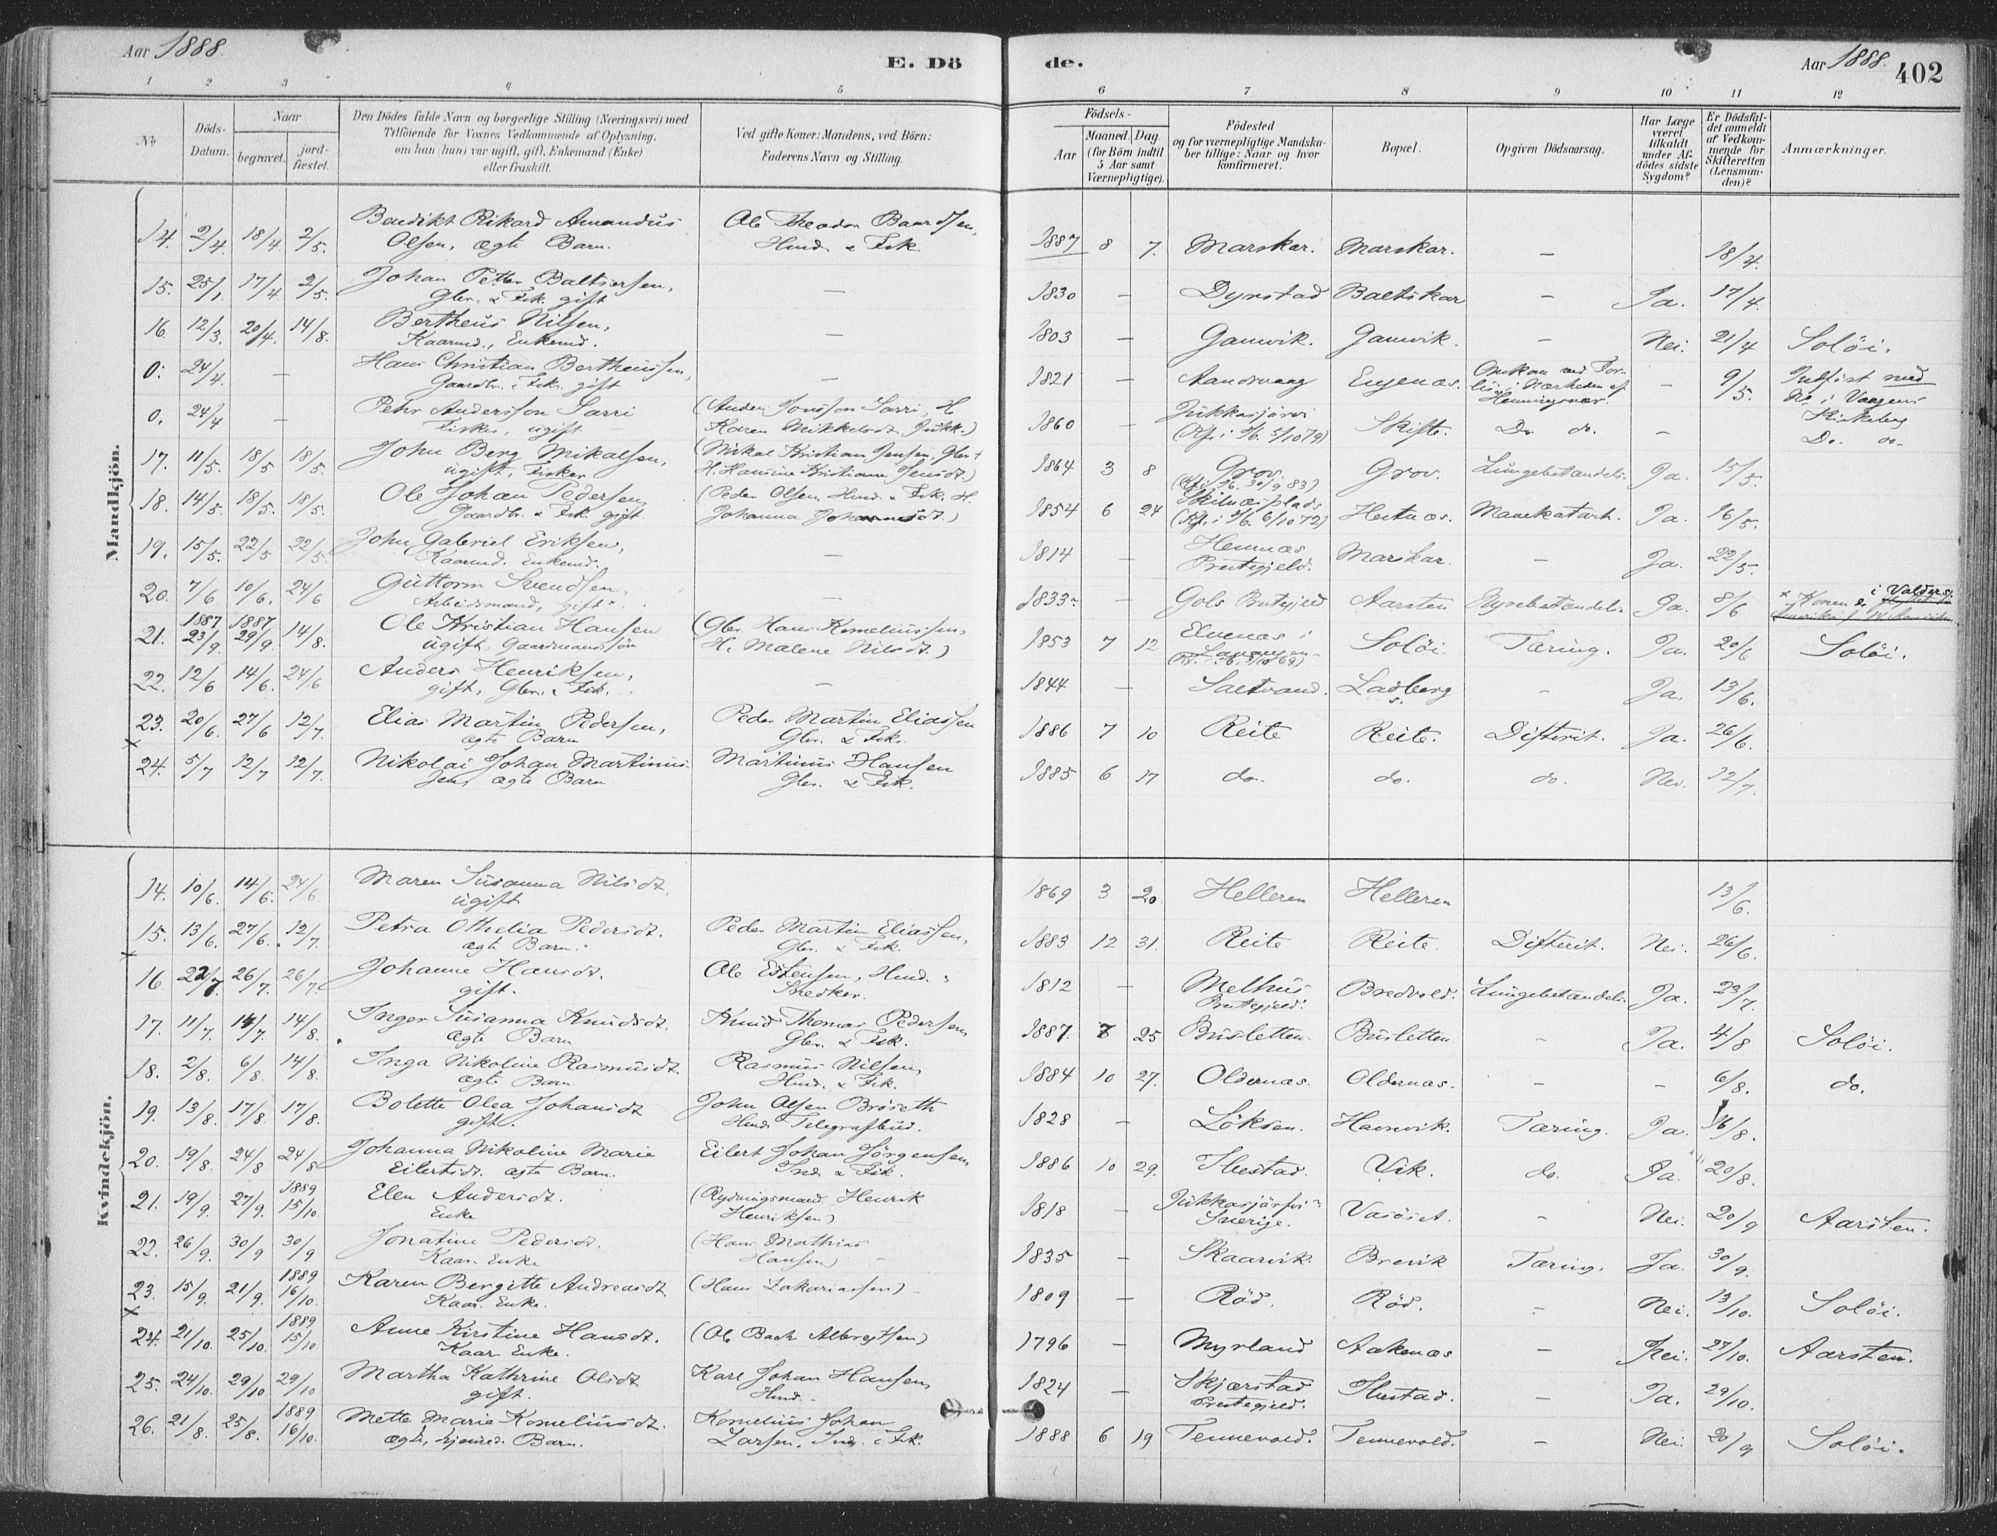 Aar 1888.
E. Dö
de.
Aar 1888.
402
1 2 3 4 5 6 7 8 9 10 11 12
No
Döds-Datum.
Naar
begravet.
jord-fæstet.
Den Dödes fulde Navn og borgerlige Stilling (Næringsvei) med
Tilföiende for Voxnes Vedkommende af Oplysning,
om han (hun) var ugift, gift, Enkemand (Enke)
eller fraskilt.
Ved gifte Koner: Mandens, ved Börn:
Faderens Navn og Stilling.
Födsels-
Aar
Maaned. Dag.
(for Börn indtil
5 Aar samt
Værnepligtige).
Födested
og for værnepligtige Mandska-
ber tillige: Naar og hvor
konfirmeret.
Bopæl.
Opgiven Dödsaarsag.
Har Læge
været
tilkaldt
under Af-
dödes sidste
Sygdom?
Er Dödsfal-
det anmeldt
af Vedkom-
mende for
Skifteretten
(Lensman-
den)?
Anmærkninger.
Mandkjön.
14. 2/4 18/4 2/5. Benedikt Rikard Amandus Ole Theodor Baardsen, 1887 8 7. Marskar. Marskar. — 18/4.
Olsen, ægte Barn. Hmd. & Fisk.
15. 25/1 17/4 2/5. Johan Petter Baltsersen, — 1830 — Dyrstad Baltskar — Ja. 17/4
Gbr. & Fisk. gift
16. 12/3 20/4. 14/8 Bertheus Nilsen, — 1803 — Gamvik. Gamvik. — Nei. 21/4 Soløi.
Kaarmd., Enkemd.
0: 24/4. — Hans Christian Bertheussen, — 1821 — Aandsvaag Engenæs. Omkom ved For- — 9/5. Indført med
Gaardbr. & Fisk. gift lis i Nærheden af No i Vaagens
0. 24/4 — Pehr Andersson Sarri (Anders Jonsson Sarri, H. 1860 — Jukkasjärvi Skifte. Henningsvær. Do. do. — Kirkebog
Fisker, ugift Karen Mikkelsdt. Jukk.) (Kf. i H. 5/10 79) Do. do.
17. 11/5. 18/5 18/5. John Berg Mikalsen, (Mikal Kristian Jensen, Gbr. 1864 3 8 Grov Grov. Lungebetændelse Ja. 15/5.
ugift, Fisker H. Hansine Kristiane Jensdt.) (Kf. i H. 30/9 83)
18. 14/5. 18/5. 18/5. Ole Johan Pedersen, (Peder Olsen, Hmd. & Fisk. H. 1854 6 24 Skilnæsplads Hertnæs. Mavekatarh. Ja. 16/5.
Gaardbr. & Fisk. gift Johanna Johannesdt.) (Kf. i H. 6/10 72)
19. 15/5 22/5 22/5 John Gabriel Eriksen, — 1814 — Hemnæs Marskar. — Ja. 22/5.
Kaarmd. Enkemd. Prestegjeld.
20. 7/6 10/6. 24/6 Guttorm Svendsen, — 1833 — Gols Prestegjeld Aarsten Nyrebetændelse Ja. 8/6 x Konen er i Valders
Arbeidsmand, gift x
21. 1887 23/9 1887 29/9. 14/8. Ole Kristian Hansen (Gbr. Hans Korneliussen, 1853 7 12 Elvenæs i Soløi. Tæring. Ja. 20/6 Soløi.
ugift. Gaardmandssøn H. Malene Nilsdt.) Lavangen
22. 12/6 14/6. 24/6 Anders Henriksen, — 1844 — Saltvand. Ladberg — Ja. 13/6.
gift, Gbr. & Fisk.
23. 20/6. 27/6 12/7. Elias Martin Pedersen, Peder Martin Eliassen 1886 7 10 Reite Reite. Difterit. Ja. 26/6.
ægte Barn Gbr. & Fisk.
x
24. 5/7 12/7 12/7. Nikolai Johan Martinus- Martinus Hansen 1885 6 17 do. do. do. Nei. 12/7.
sen, ægte Barn Gbr. & Fisk.
Kvindekjön.
14. 10/6. 14/6. 24/6. Maren Susanna Nilsdt. 1869 3 20. Helleren Helleren 13/6.
ugift
15. 13/6. 27/6. 12/7. Petra Othelia Pedersdt. Peder Martin Eliassen, 1883 12 31. Reite Reite. Difterit. Nei. 26/6.
ægte Barn. Gbr. & Fisk.
x
16. 22/7 26/7 26/7. Johanne Hansdt. Ole Estensen, Hmd. & 1812 — Melhus Bredvold. Lungebetændelse Ja. 23/7.
gift. Snedker. Prestegjeld.
17. 11/7 14/7 14/8. Inger Susanna Knudsdt. Knud Thomas Pedersen 1887. 7 25 Busletten. Busletten. — Ja. 4/8 Soløi.
ægte Barn Gbr. & Fisk.
18. 2/8. 6/8 14/8. Inga Nikoline Rasmusdt. Rasmus Nilsen, 1884 10 27. Oldernæs. Oldernæs. — — 6/8. do.
ægte Barn. Hmd. & Fisk.
19. 13/8 17/8 17/8. Bolette Olea Johansdt John Olsen Brøseth 1828 — Løksen. Havnvik. Tæring. Ja. 16/8.
gift. Hmd. & Telegrafbud.
20. 19/8. 24/8 24/8 Johanna Nikoline Marie Eilert Johan Jørgensen, 1886 10 29. Ibestad. Vik. do. Ja. 20/8.
Eilertsdt. ægte Barn. Ind. & Fisk.
21. 19/9. 27/9. 1889 15/10. Elen Andersdt. (Rydningsmand Henrik 1818 — Jukkasjärfvi Vasöset. — Nei. 20/9 Aarsten.
Enke Henriksen) Sverige.
22. 26/9. 30/9 30/9 Jonatine Pedersdt. (Hans Mathias 1835 — Skaarvik. Brevik Tæring. Ja. 30/9.
Kaar. Enke Hansen)
23. 15/9. 21/9. 1889 16/10. Karen Bergitte Andreasdt. (Hans Zakariassen) 1809 — Rød. Rød. — Nei. 13/10. Soløi.
Kaar. Enke.
x
24. 21/10. 25/10. 1889 15/10. Anne Kirstine Hansdt. (Ole Bach Albregtsen) 1796 — Myrland Aakenæs — Nei. 27/10. Aarsten.
Kaar. Enke.
25. 24/10. 29/10 29/10 Martha Kathrine Olsdt Karl Johan Hansen, 1824 — Skjærstad Ibestad. — Ja. 29/10.
gift. Hmd. Prestegjeld.
26. 21/8. 25/8. 1889 16/10. Mette Marie Korneliusdt. Kornelius Johan 1888 6 19 Tennevold. Tennevold. — Nei. 20/9 Soløi.
ægte, hjemmed. Barn. Larsen, Ind. & Fisk.